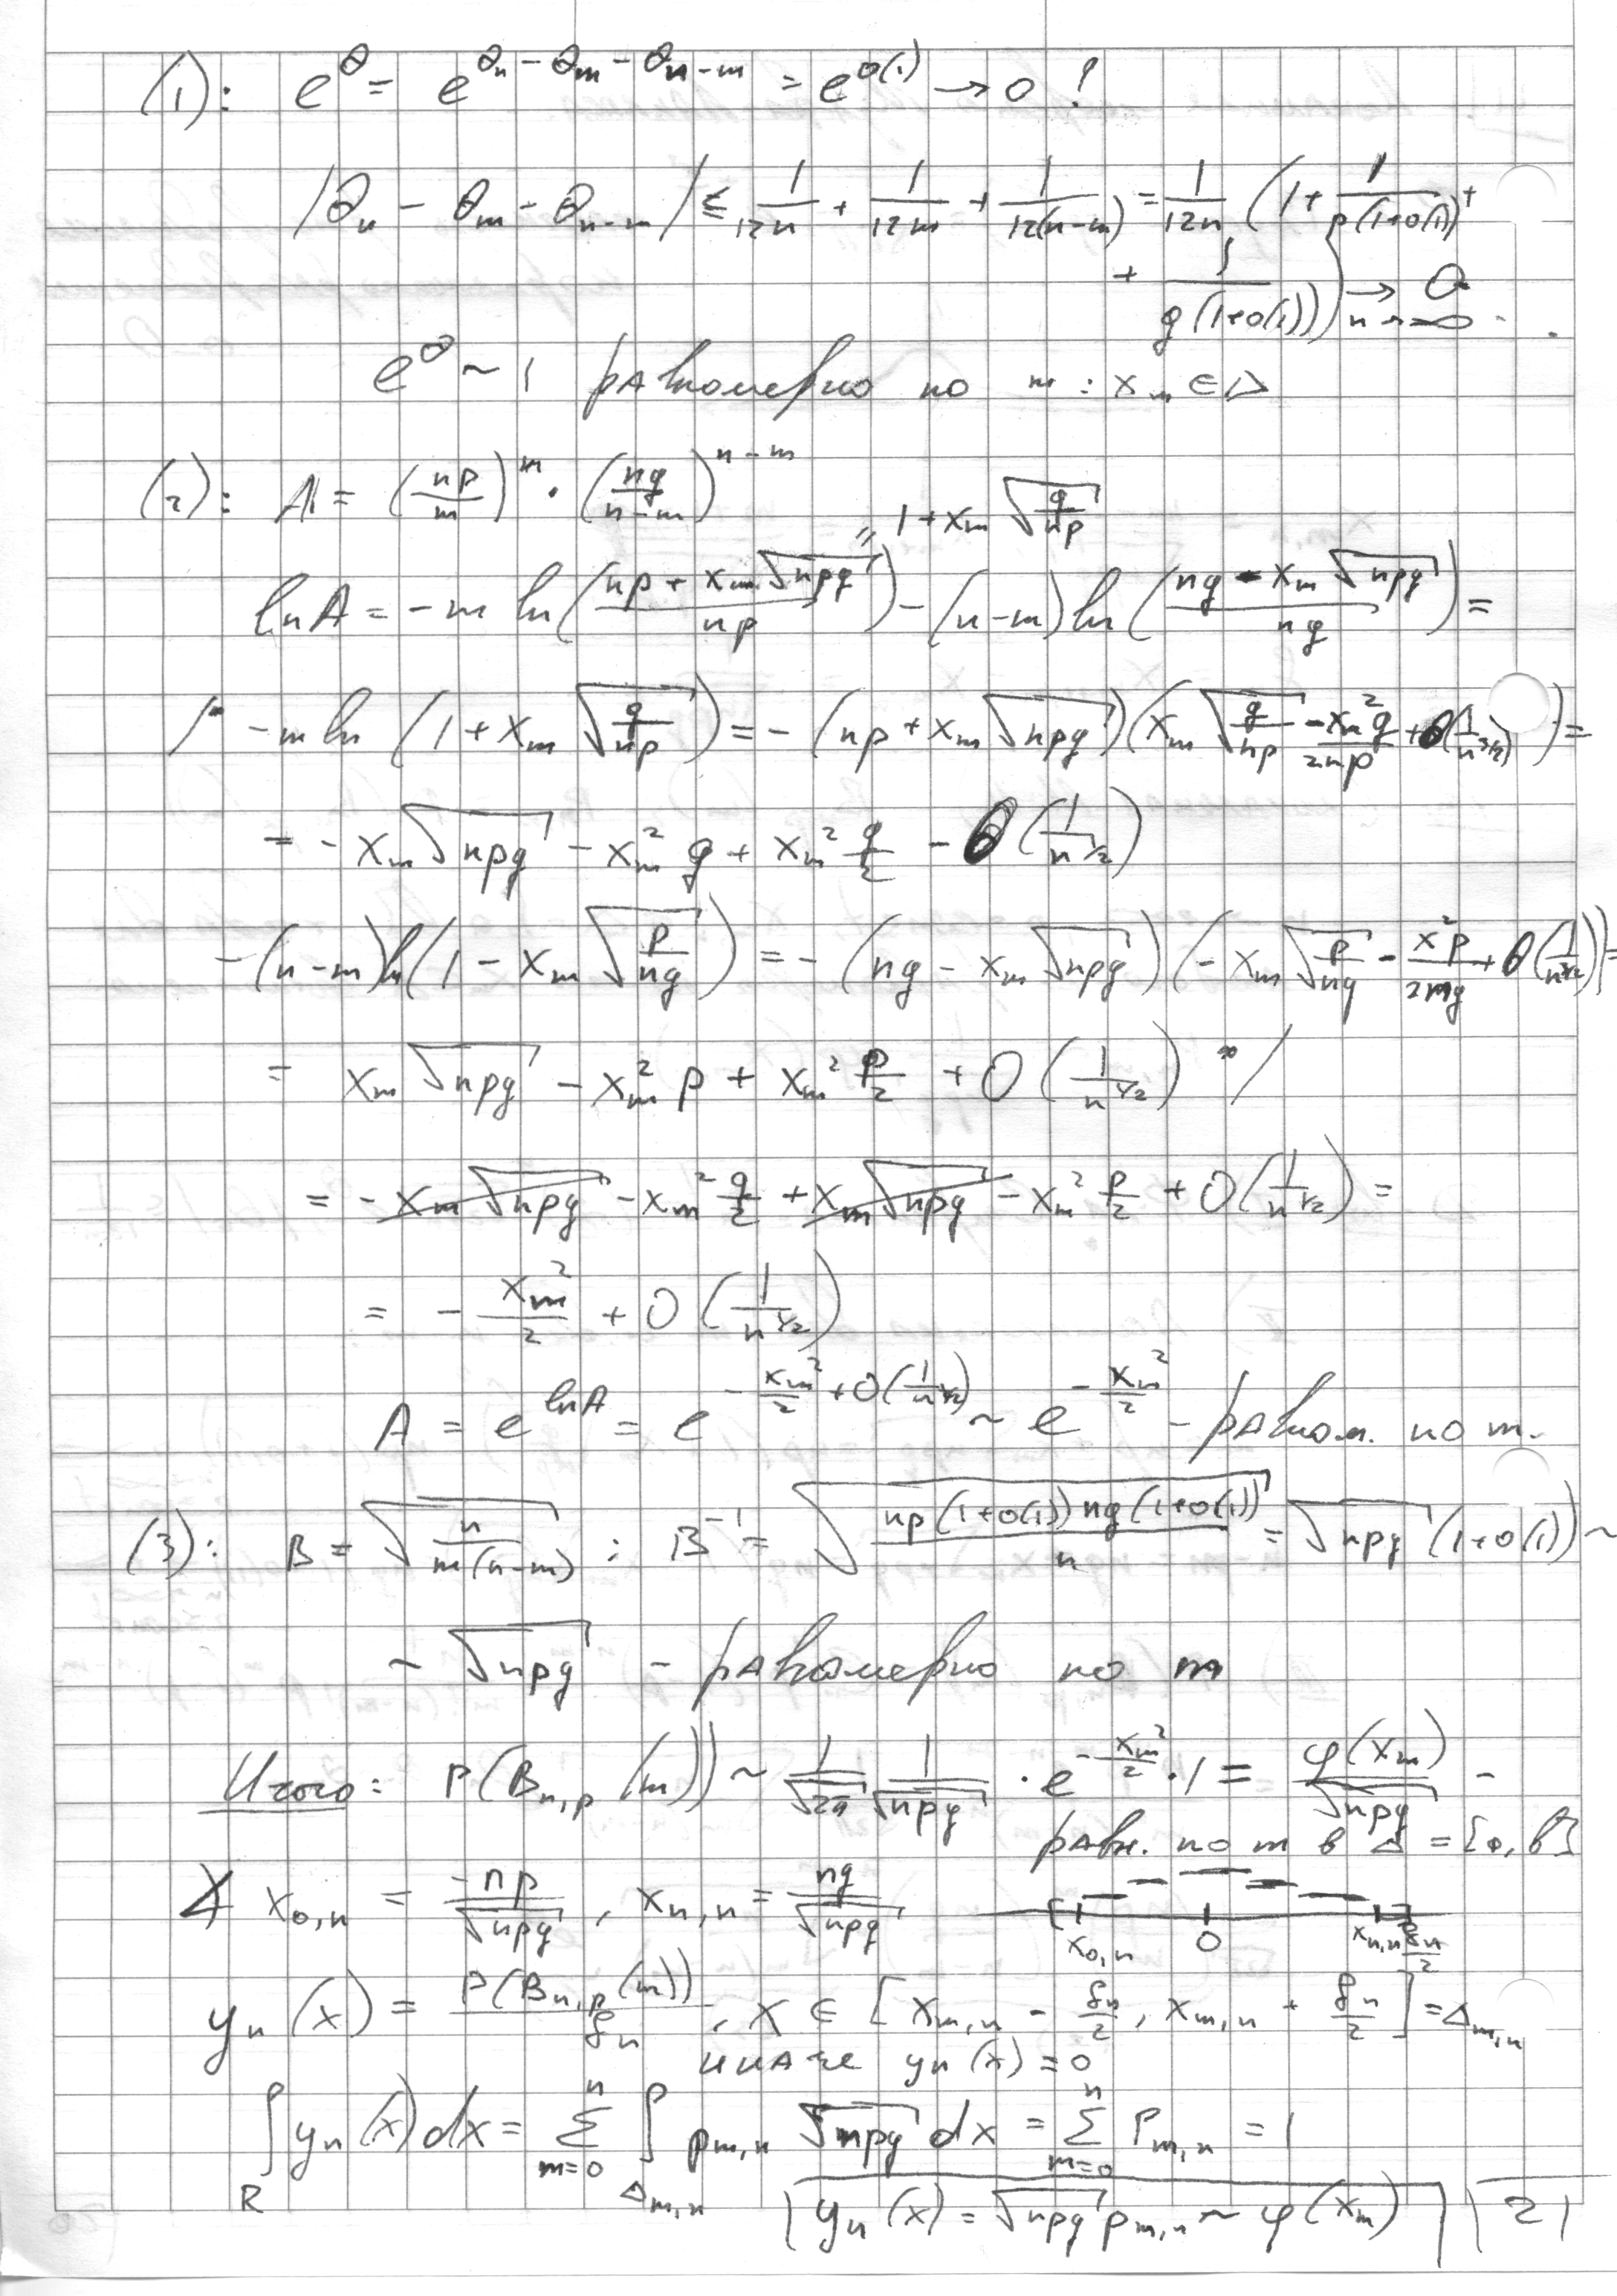 (1): e^θ = e^{θ_n - θ_m - θ_{n-m}} = e^{o(1)} → 0 !
|θ_n - θ_m - θ_{n-m}| ≤ 1/(12n) + 1/(12m) + 1/(12(n-m)) = 1/(12n) (1 + 1/(p(1+o(1))) +
+ 1/(q(1+o(1)))) →_{n→∞} 0
e^θ ~ 1 равномерно по m : x_m ∈ Δ
(2): A = (np/m)^m · (nq/(n-m))^{n-m}
= 1 + x_m √(q/(np))
ln A = -m ln((np + x_m √(npq))/(np)) - (n-m) ln((nq - x_m √(npq))/(nq)) =
/* -m ln (1 + x_m √(q/(np))) = -(np + x_m √(npq)) (x_m √(q/(np)) - x_m² q/(2np) + O(1/n^{3/2})) =
= - x_m √(npq) - x_m² q + x_m² q/2 - O(1/n^{1/2})
-(n-m) ln(1 - x_m √(p/(nq))) = -(nq - x_m √(npq)) (- x_m √(p/(nq)) - x² p/(2nq) + O(1/n^{3/2})) =
= x_m √(npq) - x_m² p + x_m² p/2 + O(1/n^{1/2}) */
= - x_m √(npq) - x_m² q/2 + x_m √(npq) - x_m² p/2 + O(1/n^{1/2}) =
= - x_m²/2 + O(1/n^{1/2})
A = e^{ln A} = e^{-x_m²/2 + O(1/n^{1/2})} ~ e^{-x_m²/2} - равном. по m.
(3): B = √(n/(m(n-m))) ; B^{-1} = √(np(1+o(1)) nq(1+o(1))/n) = √(npq) (1+o(1)) ~
~ √(npq) - равномерно по m
Итого: P(B_{n,p}(m)) ~ 1/√(2π) 1/√(npq) · e^{-x_m²/2} · 1 = φ(x_m)/√(npq) -
равн. по m в Δ = [a, b]
∢ x_{0,n} = -np/√(npq), x_{n,n} = nq/√(npq)
x_{0,n} 0 x_{n,n} δ_n/2
y_n(x) = P(B_{n,p}(m))/δ_n, x ∈ [x_{m,n} - δ_n/2, x_{m,n} + δ_n/2] = Δ_{m,n}
иначе y_n(x) = 0
∫_R y_n(x) dx = Σ_{m=0}^n ∫_{Δ_{m,n}} p_{m,n} √(npq) dx = Σ_{m=0}^n P_{m,n} = 1
y_n(x) = √(npq) p_{m,n} ~ φ(x_m)
21